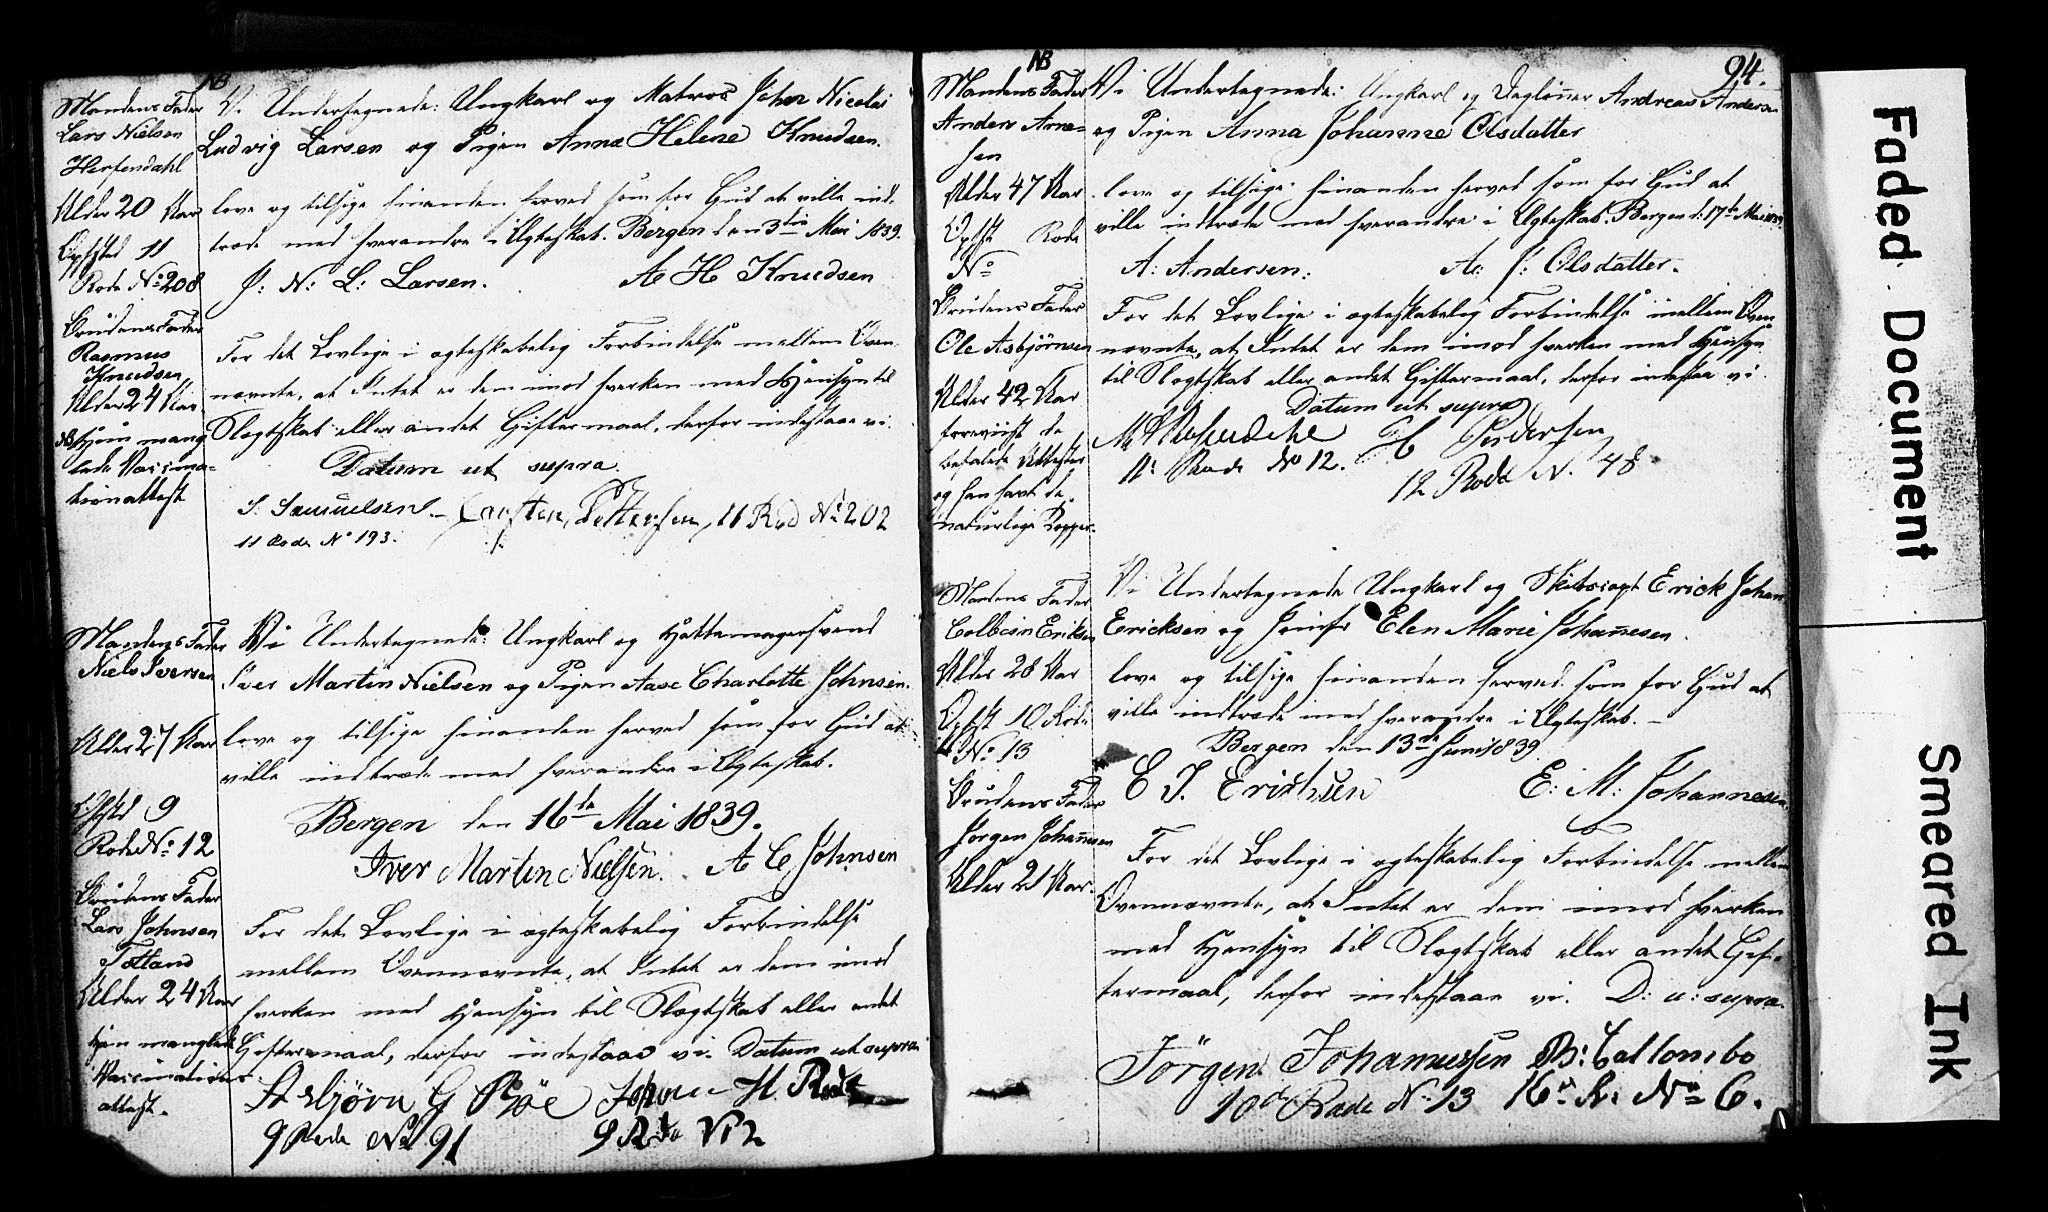 NB
Mandens Fader
Lars Nielsen
Herfendahl
Alder 20 Aar
Opfsted 11
Rode No 208
Brudens Fader
Rasmus
Knudsen
Alder 24 Aar
NB Hun mang
lede Vaccina-
tionattest
Vi Undertegnede: Ungkarl og Matros John Nicolai
Ludvig Larsen og Pigen Anna Helene Knudsen.
love og tilsige hinanden herved som for Gud at ville ind-
træde med hverandre i Ægteskab. Bergen den 3die Mai 1839.
J: N: L: Larsen. A H Knudsen
For det Lovlige i ægteskabelig Forbindelse mellem Oven-
nævnte, at Intet er dem imod hverken med Hensyn til
Slægtskab eller andet Giftermaal, derfor indestaae vi.
Datum ut supra.
S. Samuelsen Carsten Pettersen, 11 Rod No 202
11 Rode No 193.
Mandens Fader
Niels Iversen
Alder 27 Aar
Opfsted 9
Rode No 12
Brudens Fader
Lars Johnsen
Totland
Alder 24 Aar
hun manglede
Vaccinations
attest.
Vi Undertegnede: Ungkarl og Hattemagersvend
Iver Martin Nielsen og Pigen Aase Charlotte Johnsen.
love og tilsige hinanden herved som for Gud at
ville indtræde med hverandre i Ægteskab.
Bergen den 16de Mai 1839.
Iver Martin Nielsen. A C Johnsen
For det Lovlige i ægteskabelig Forbindelse
mellem Ovennævnte, at Intet er dem imod
hverken med Hensyn til Slægtskab eller andet
Giftermaal, derfor indestaae vi. Datum ut supra
Asbjørn G H. Rode
9 Rode No 91 9 Rode No 2
94.
NB
Mandens Fader
Anders Arne-
sen
Alder 47 Aar
Opfst Rode
No
Brudens Fader
Ole Asbjørnsen
Alder 42 Aar
foreviist de
befalede Attester
og han havt de
naturlige Kopper.
Vi Undertegnede: Ungkarl og Dagleiner Andreas Andersen
og Pigen Anna Johanne Olsdatter
love og tilsige hinanden herved som for Gud at
ville indtræde med hverandre i Ægteskab. Bergen d: 17de Mai 1839.
A: Andersen. A: J: Olsdatter.
For det Lovlige i ægteskabelig Forbindelse imellem Oven-
nævnte, at Intet er dem imod hverken med Hensyn
til Slægtskab eller andet Giftermaal, derfor indestaa vi.
Datum ut supra
Pedersen
Rode No 12.
12 Rode N. 48
Mandens Fader
Colbein Eriksen
Alder 28 Aar
Opfst 10 Rode
No 13
Brudens Fader
Jørgen Johannesen
Alder 21 Aar.
Vi Undertegnede Ungkarl og Erick Johan
Ericksen og Jomfr Elen Marie Johannesen.
love og tilsige hinanden herved som for Gud at
ville indtræde med hverandre i Ægteskab. —
Bergen den 13de Juni 1839
E J. Erichsen E: M: Johannesen
For det Lovlige i ægteskabelig Forbindelse mellem
Ovennævnte, at Intet er dem imod hverken
med Hensyn til Slægtskab eller andet Gif-
termaal, derfor indestaae vi. D: u: supra.
Jörgen Johannessen B: Collombo
10de Rode No 13 16de R: No 6.
Faded Document
Smeared Ink